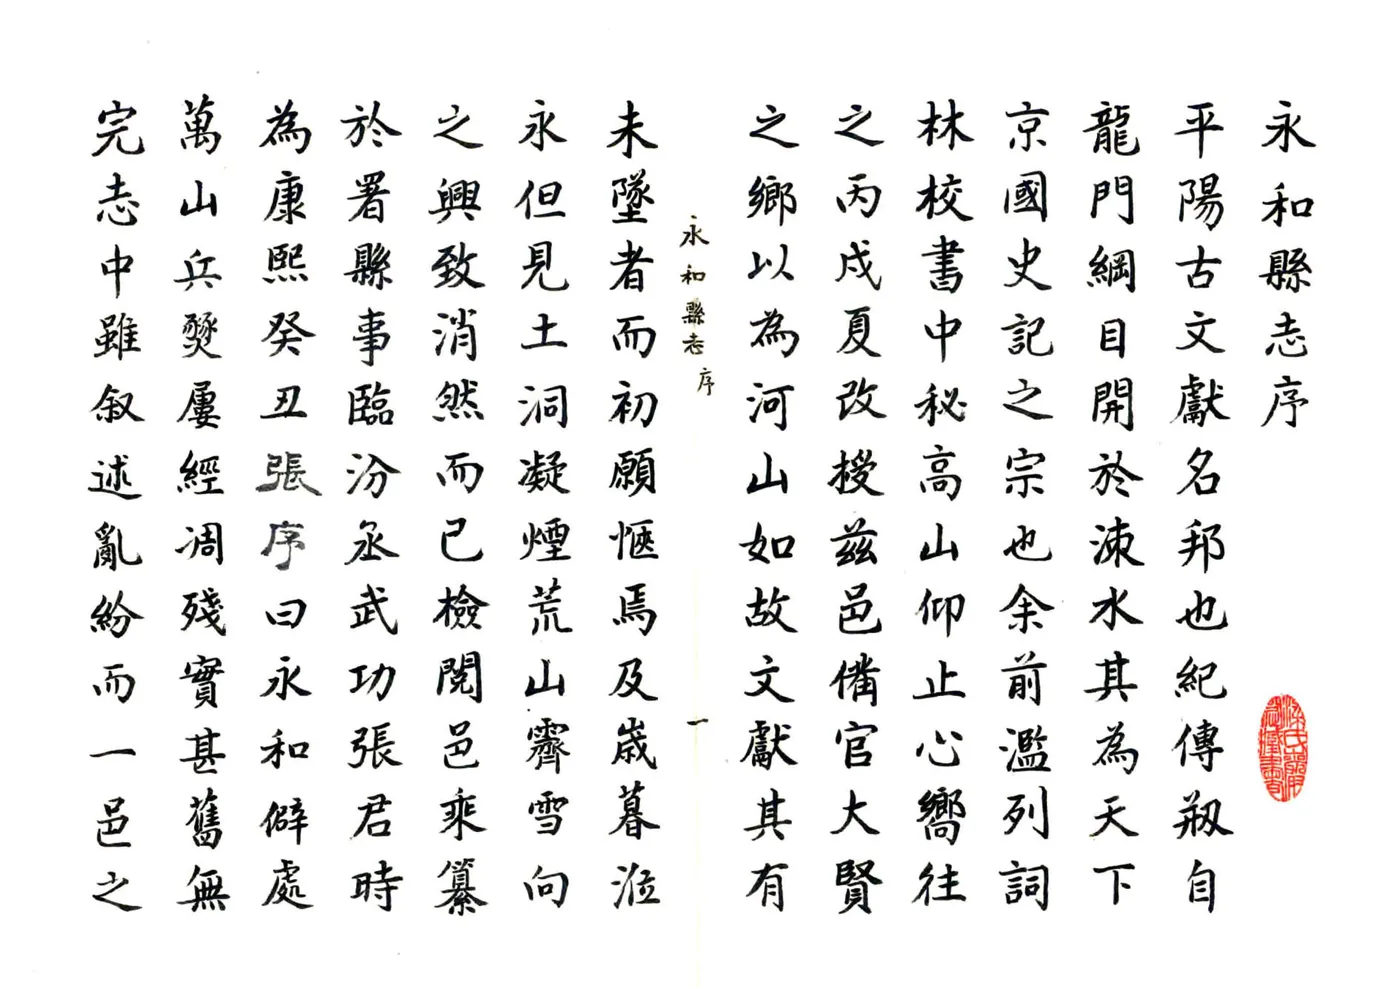 永和縣志序
平陽古文獻名邦也紀傳剏自
龍門綱目開於涑水其為天下
京國史記之宗也余前濫列詞
林校書中秘高山仰止心嚮往
之丙戌夏改授兹邑備官大賢
之鄉以為河山如故文獻其有
永和縣志 序
一
未墜者而初願愜焉及歲暮涖
永但見土洞凝煙荒山霽雪向
之興致消然而已檢閱邑乘纂
於署縣事臨汾丞武功張君時
為康熙癸丑張序曰永和僻處
萬山兵燹屢經凋殘實甚舊無
完志中雖叙述亂紛而一邑之